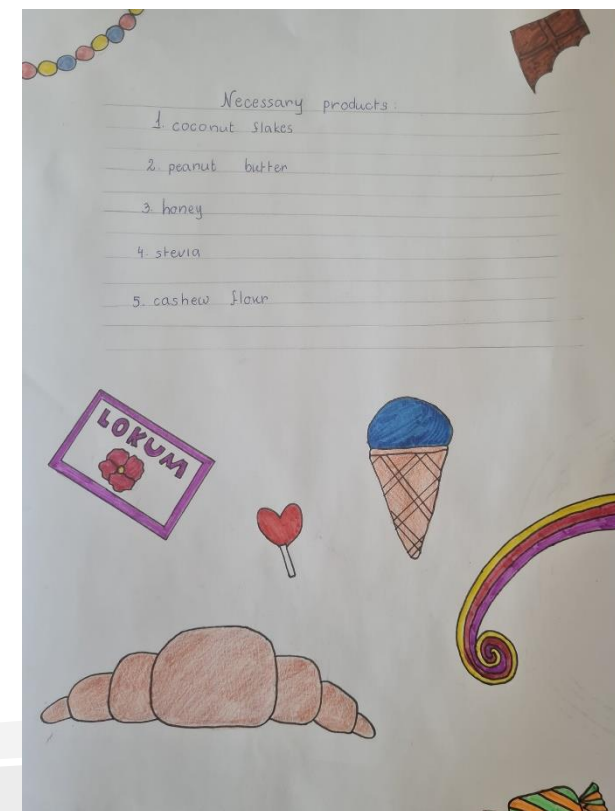 Necessary products:
1. coconut flakes
2. peanut butter
3. honey
4. stevia
5. cashew flour
LOKUM